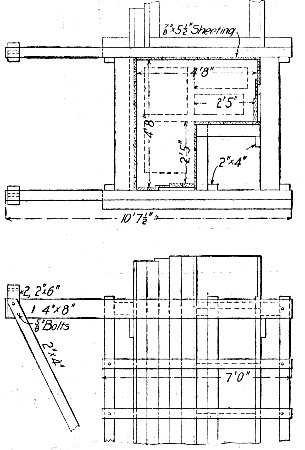 ⅞"×5½" Sheeting
4'8"
2'5"
4'8"
2'5"
2"×4"
10'7½"
2, 2"×6"
1 4"×8"
⅝" Bolts
2"×4"
7'0"